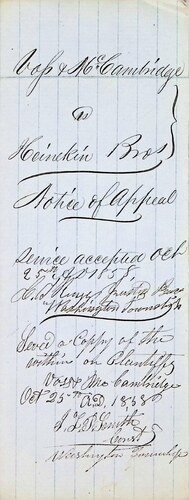 Voss & McCambridge
vs
Heinekin Bros
Notice of Appeal
Service accepted Oct
25th AD 1858
Justice Peace
Washington Township
Served a Copy of the
within on Plaintiffs
Voss & McCambridge
Oct 25th A.D. 1858
Smith
Const
Washington Township